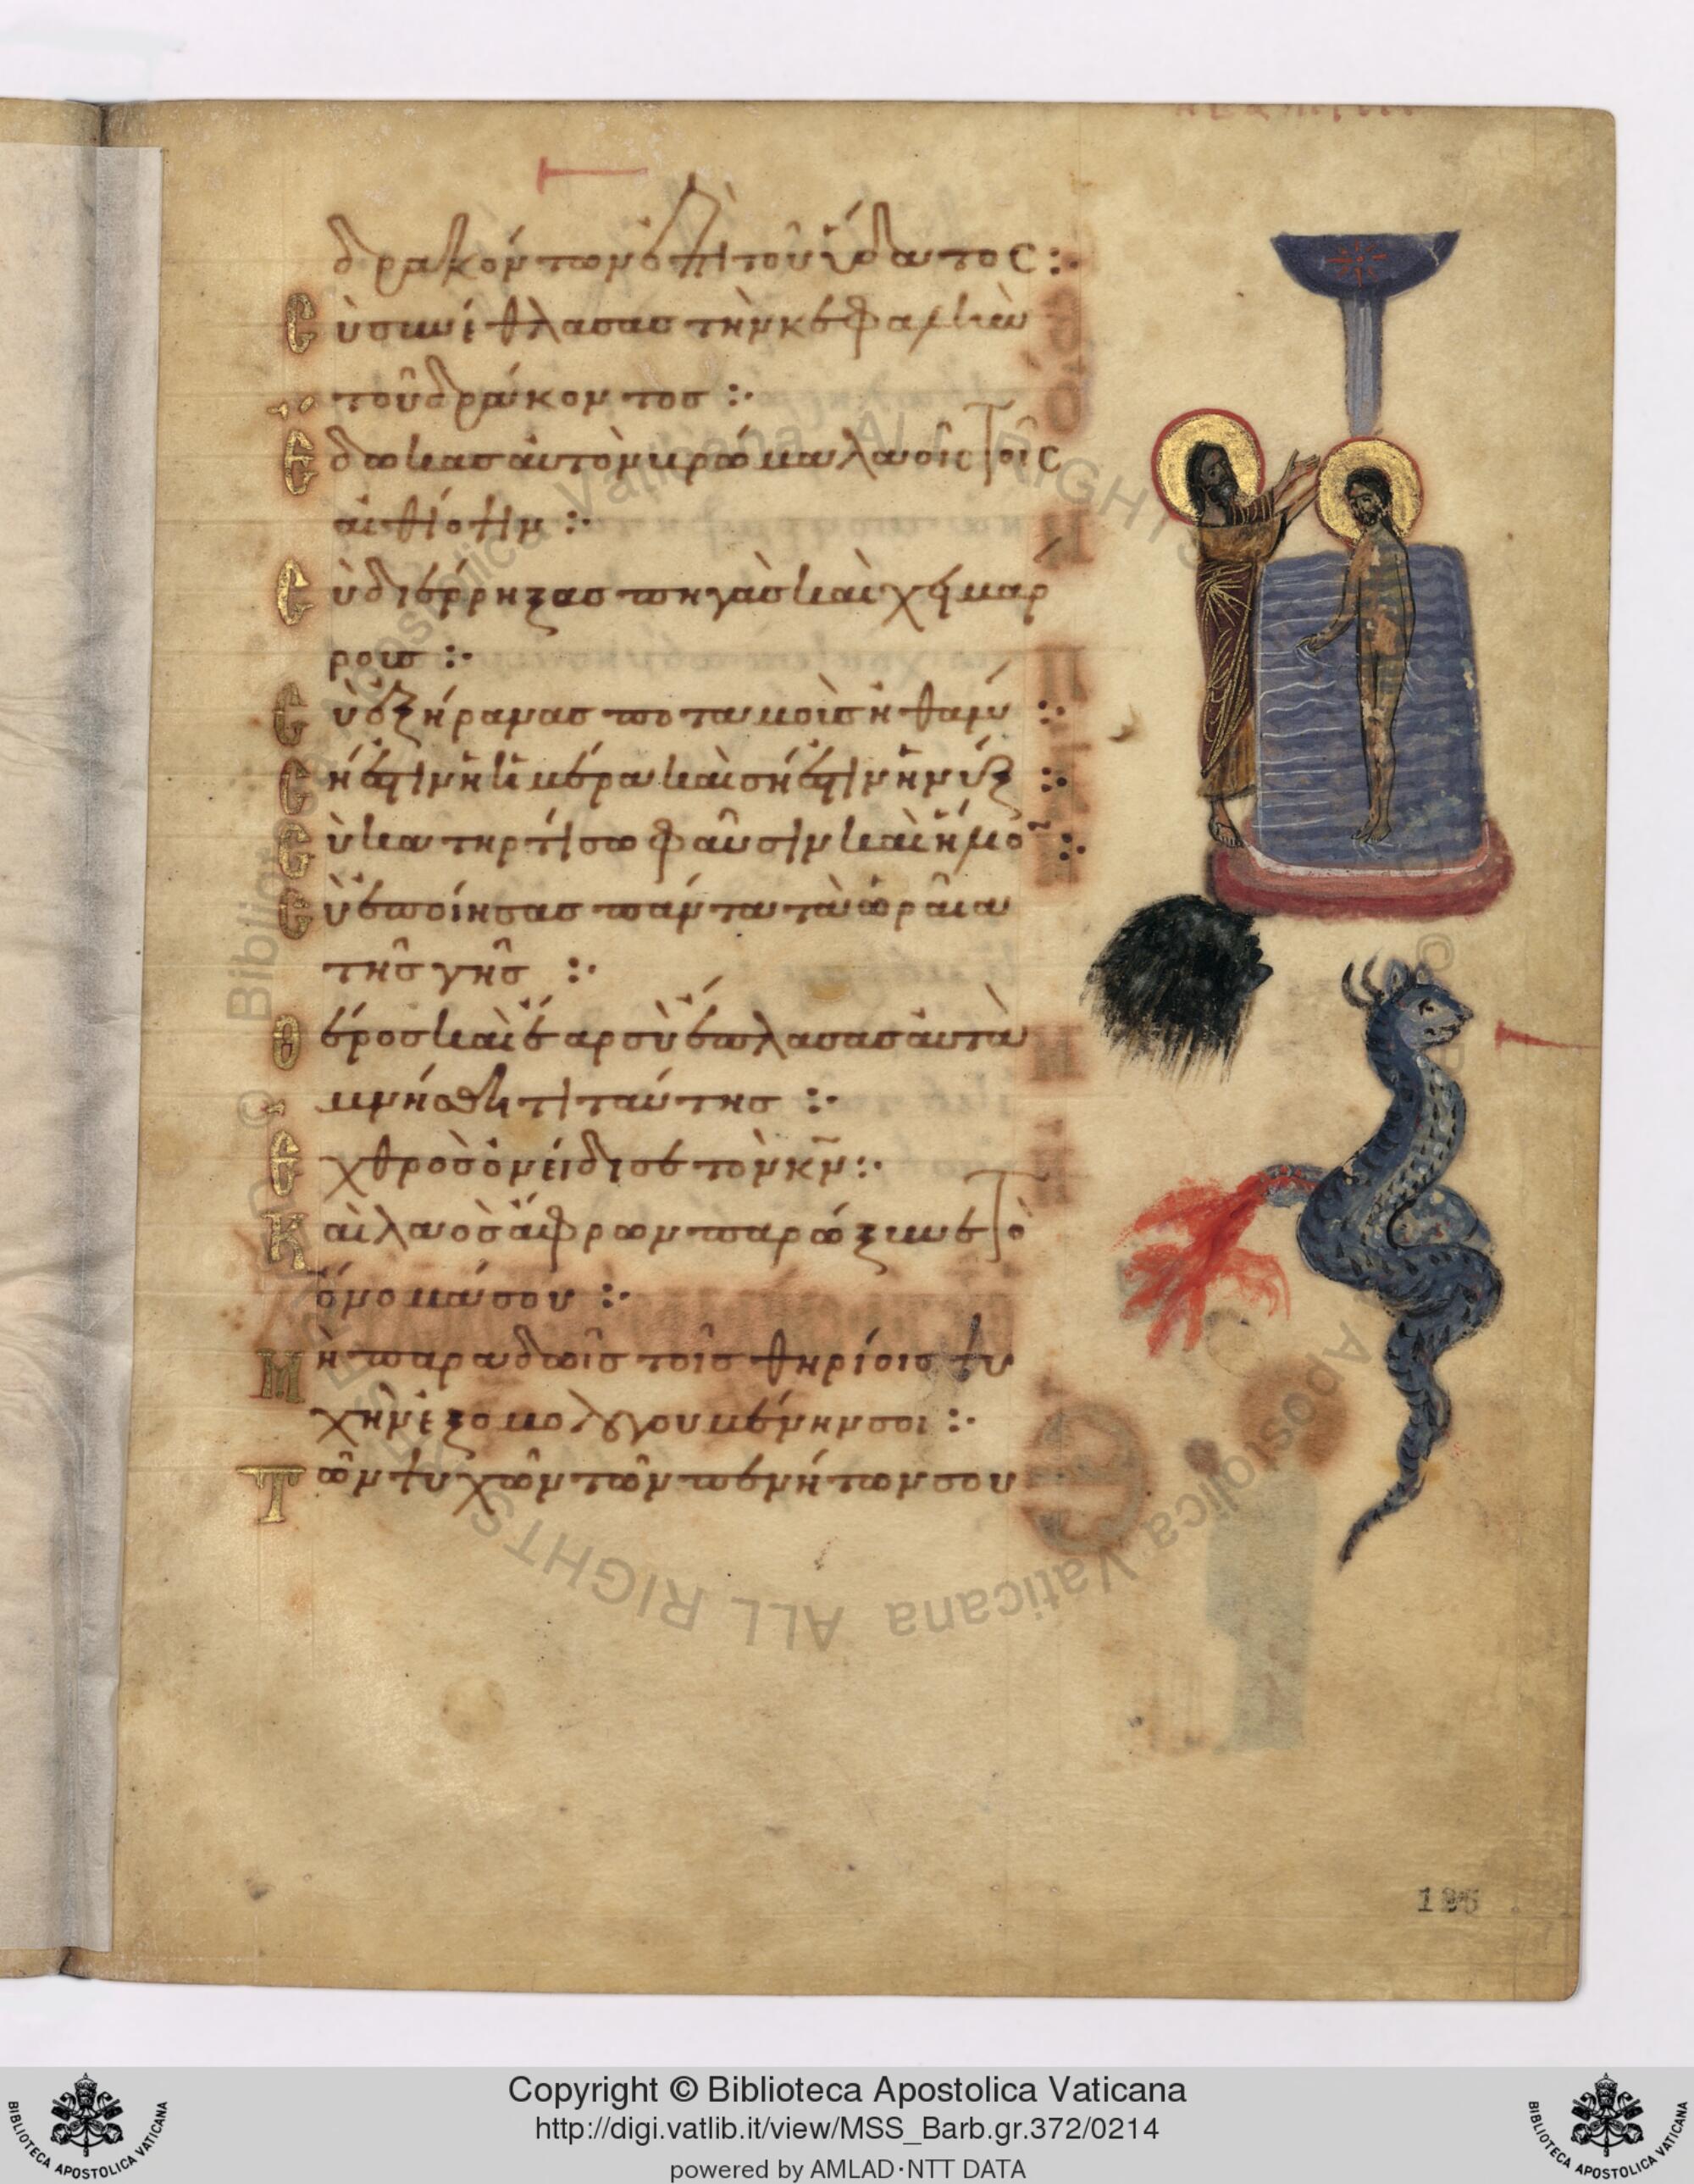 δρακόντων ἐπὶ τοῦ ὕδατος :·
Σὺ συνέθλασας τὴν κεφαλὴν
τοῦ δράκοντος :·
Ἔδωκας αὐτὸν βρῶμα λαοῖς τοῖς
αἰθίοψιν :·
Σὺ διέρρηξας πηγὰς καὶ χειμάρ
ρους :·
Σὺ ἐξήρανας ποταμοὺς ἠθάμ :·
Σή ἐστιν ἡ ἡμέρα καὶ σή ἐστιν ἡ νύξ :·
Σὺ κατηρτίσω φαῦσιν καὶ ἥλιον :·
Σὺ ἐποίησας πάντα τὰ ὡραῖα
τῆς γῆς :·
Θέρος καὶ ἔαρ σὺ ἔπλασας αὐτὰ
μνήσθητι ταύτης :·
Ἐχθρὸς ὀνείδισε τὸν κν̄ :·
Καὶ λαὸς ἄφρων παρώξυνε τὸ
ὄνομά σου :·
Μὴ παραδῷς τοῖς θηρίοις ψυ
χὴν ἐξομολογουμένην σοι :·
Τῶν ψυχῶν τῶν πενήτων σου
195
Copyright © Biblioteca Apostolica Vaticana
http://digi.vatlib.it/view/MSS_Barb.gr.372/0214
powered by AMLAD·NTT DATA
BIBLIOTECA APOSTOLICA VATICANA
BIBLIOTECA APOSTOLICA VATICANA
© Biblioteca Apostolica Vaticana ALL RIGHTS